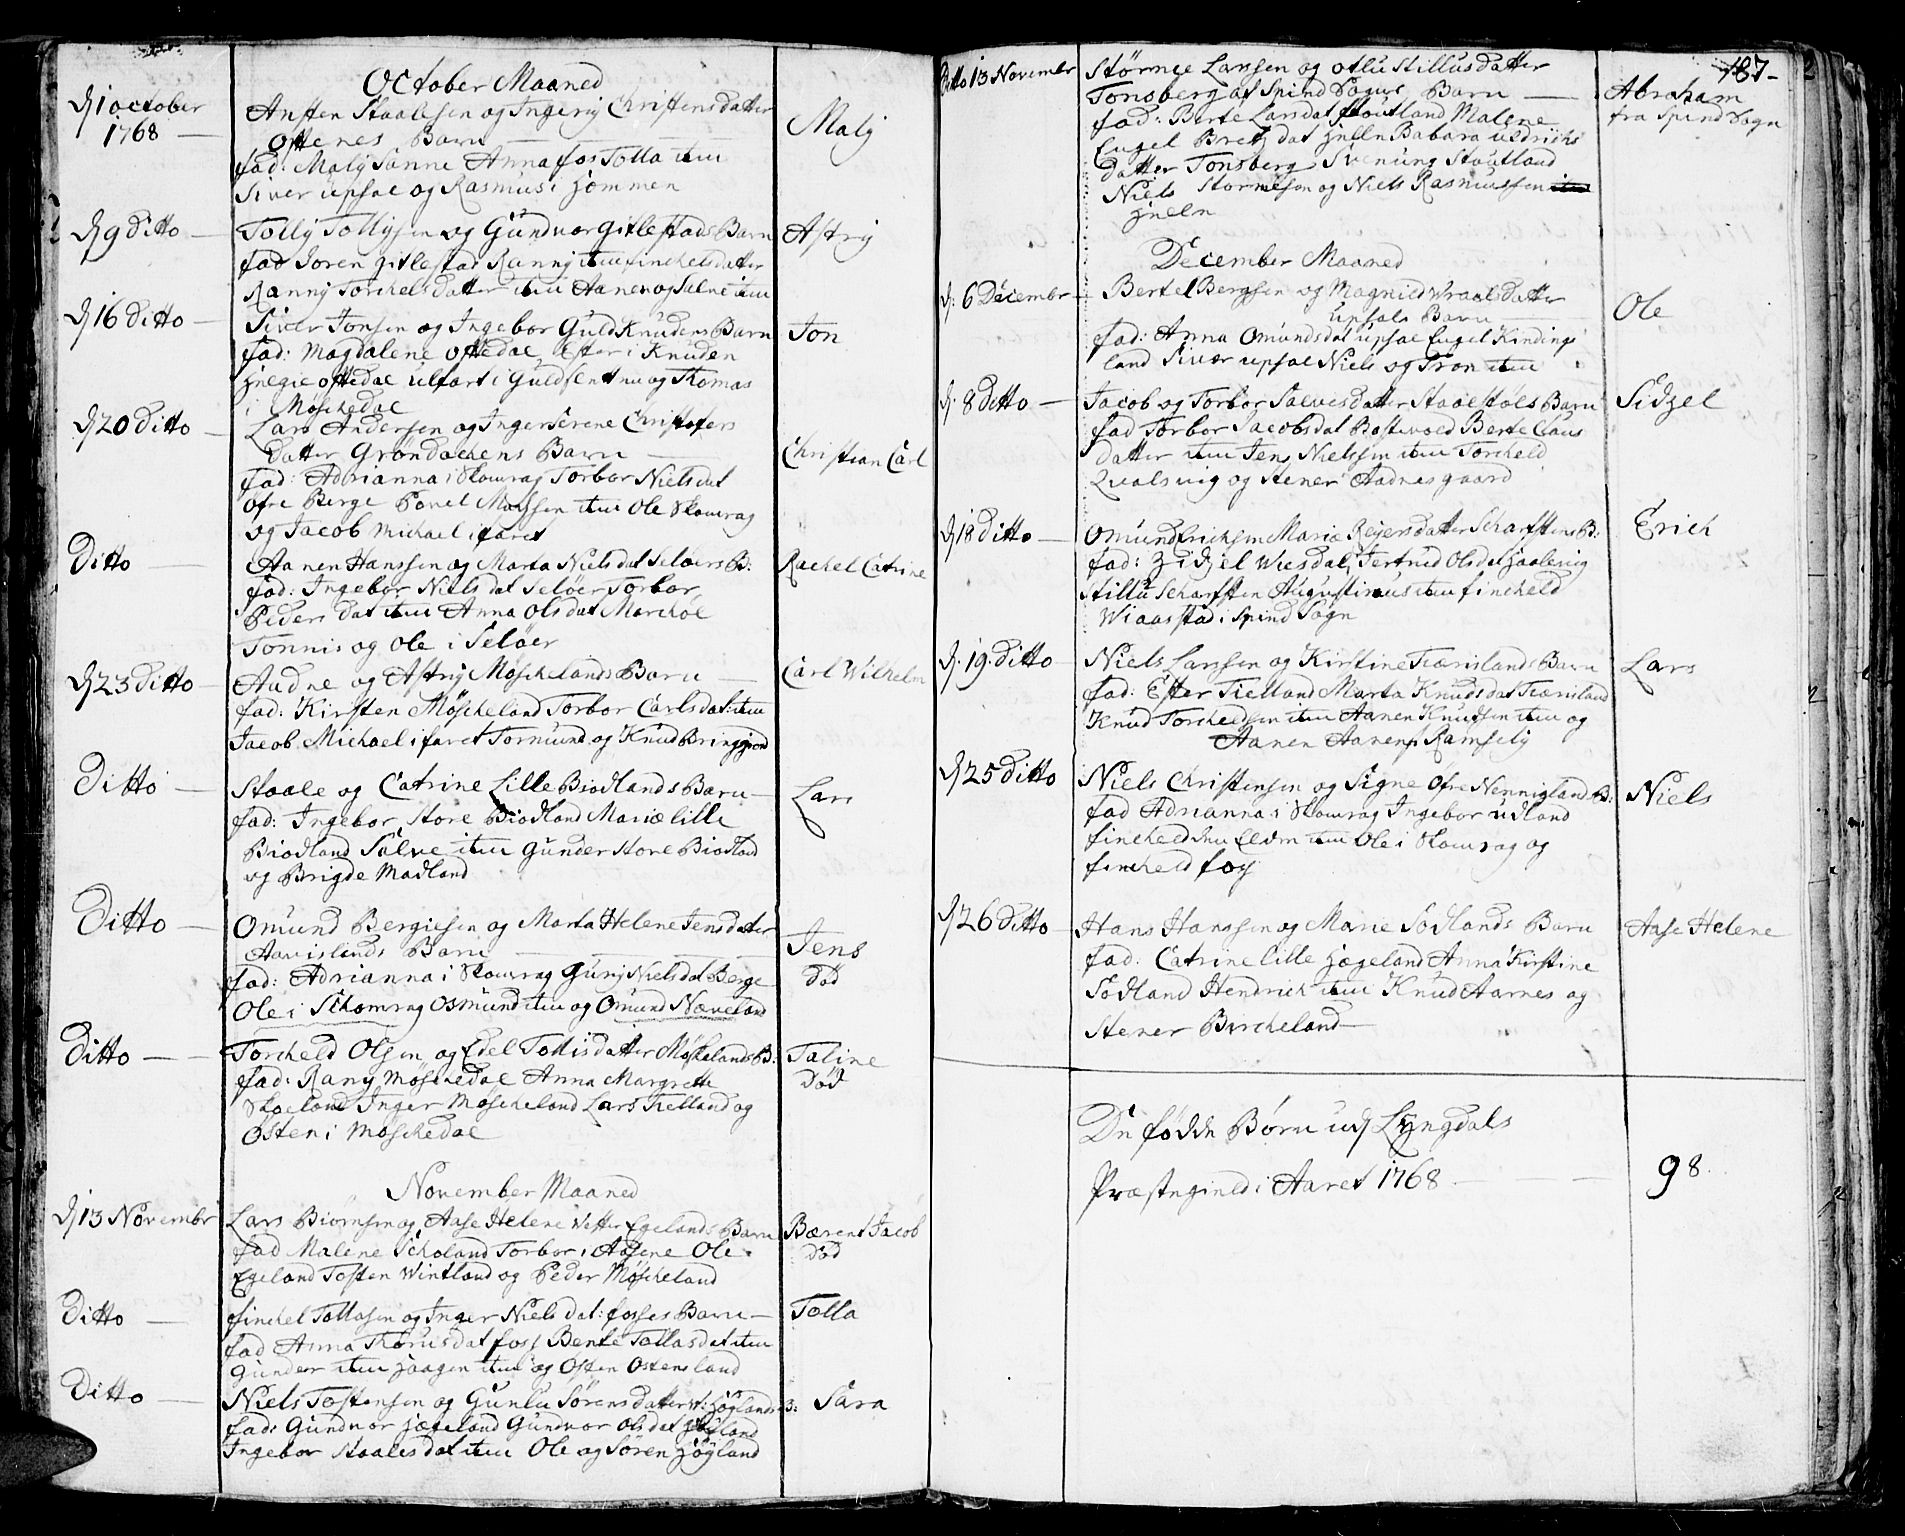 October Maaned
d 1 october 1768 — Ansten Staalesen og Ingerij Christensdatter
ottenes Barn — Malj
fad: Malj Sanne Anna fos Tolla item
Siver upsal og Rasmus i Hommen
d 9 Ditto — Tollj Tollyssen og Gundvor Gitlestads Barn — Astrij
fad Soren Gitlestad Rannj item finckelsdatter
Rannj Torckelsdatter item Aanen og Salve item
d 16 Ditto — Siver Jonsen og Ingebor Guldknudens Barn — Jon
fad: Magdalene oftedal Ester i Knuden
Helgie oftedal ulfart i Guldsentnu og Thomas
i Møschedal
d 20 Ditto — Lars Andersen og Inger Serene Christofers
datter Grøndalens Barn — Christian Carl
fad: Adrianna i Skomrag Torbor Nielsdat
øfre Berge Povel Monssen item Ole Skomrag
og Jacob Michael i faret
Ditto — Aanen Hanssen og Marta Nielsdat Seløers B: — Rachel Catrine
fad: Ingebor Nielsdat Seløer Torbor
Pedersdat item Anna Olsdat Marchøe
Tønnis og Ole i Seløer
d 23 Ditto — Audne og Astrij Møschelands Barn — Carl Wilhelm
fad: Kirsten Møscheland Torbor Carlsdat: item
Jacob Michael i faret Tormund og Knud Bringsiord
Ditto — Staale og Catrine Lille Biodlands Barn — Lars
fad: Ingebor Store Biodland Mariæ lille
Biodland Salve item Gunder Store Biodland
og Brigde Madland
Ditto — Omund Bergiesen og Marta Helene Jensdater
Aavislands Barn — Jens død
fad: Adrianna i Skomrag Gurij Nielsdat Berge
Ole i Skomrag Osmund item og Omund Næveland
Ditto — Torckeld Olsen og Edel Tollisdatter Møskelands B: — Taline død
fad: Ranij Moschedal Anna Margrette
Skoeland Inger Moscheland Lars Tielland og
Osten i Moschedal
November Maaned
d 13 Novembr — Lars Biornsen og Aase Helene Vetter Egelands Barn — Bærent Jacob død
fad Malene Scholand Torbor i Aasene Ole
Egeland Tosten Wintland og Peder Møscheland
Ditto — finckel Tollasen og Inger Nielsdat: fosses Barn — Tolla
fad Anna Thorusdat foss Bente Tollasdat item
Gunder item Haagen item og Osten Ostensland
Ditto — Niels Tostensen og Gunlu Sørensdatter N: Høglands B: — Sara
fad: Gundvor Hægeland Gundvor Olsdat Høgland
Ingebor Staalesdat item Ole og Søren Høgland
187-
Ditto 13 Novembr — Størmee Larssen og otlu Stillusdatter
Tonsberg af Spind Sogns Barn — Abraham fra Spind Sogn
fad: Berte Larsdat Stoutland Malene
Engel Bretzdat Helle Babara uldrichs
datter Tonsberg Svenung Stoutland
Niels Stormesen og Niels Rasmussen item
Helle
December Maaned
d: 6 Decembr — Bertel Bergsen og Magnild Wraalsdatter
upsals Barn — Ole
fad: Anna Omundsdat upsal Engel Kindings
land Siver upsal Niels og Tron item
d. 8 Ditto — Jacob og Torbor Salvesdatter Staalestøls Barn — Sidzel
fad Torbor Jacobsdat Rostevold Berte Claus
datter item Jens Nielssen item Torckeld
Qualsvig og Stener Aadnesgaard
d 18 Ditto — Omund Erichsen Mariæ Reiersdatter Scharstens B: — Erich
fad: Zidzel Wiesdal, Jertrud Olsdat Haalevig
Stillu Scharsten Augustinus item finckeld
Wiaasstad i Spind Sogn
d. 19. ditto — Niels Larssen og Kirstine Tiærislands Barn — Lars
fad: Ester Tielland Marta Knudsdat Tiærisland
Knud Torckeldsen item Aanen Knudsen item og
Aanen Aanens Ramselij
d 25 ditto — Niels Christensen og Signe Øfre Nennigland B: — Niels
fad Adrianna i Skomrag Ingebor udland
finckeld item Ole i Skomrag og
finckeld foss
d 26 Ditto — Hans Hanssen og Marie Sødlands Barn — Aase Helene
fad: Catrine lille Hægeland Anna Kirstine
Sødland Hendrich item Knud Aarnes og
Stener Bircheland —
De fødde Børn udj Lyngdals
Præstegield i Aaret 1768 — 98.